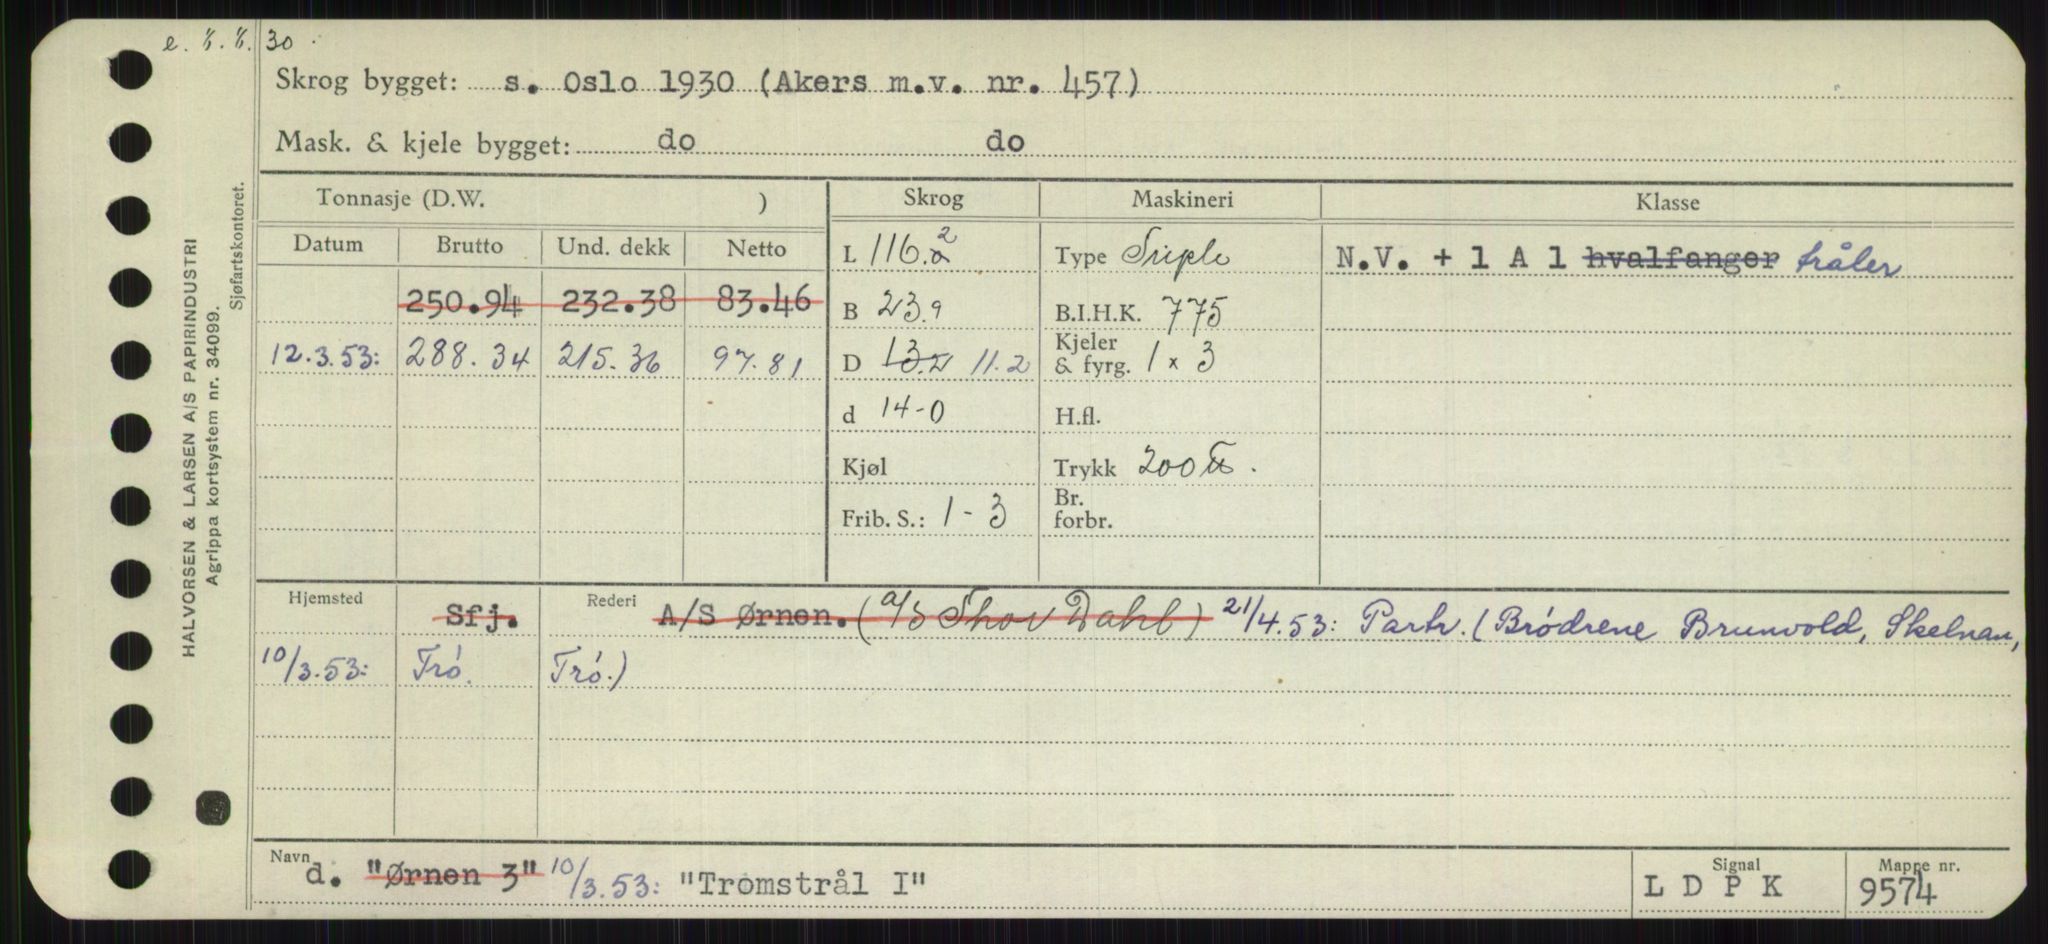 e. 8. 8. 30.
Skrog bygget: s. Oslo 1930 (Akers m.v. nr. 457)
Mask. & kjele bygget: do do
Tonnasje (D.W. ) Skrog Maskineri Klasse
Datum Brutto Und. dekk Netto
L 116.2 Type Triple N.V. + 1 A 1 hvalfanger tråler
250.94 232.38 83.46 B 23.9 B.I.H.K. 775
12.3.53: 288.34 215.36 97.81 D 13.2 11.2 Kjeler & fyrg. 1 x 3
d 14-0 H.fl.
Kjøl Trykk 200 ℔.
Frib. S.: 1 - 3 Br. forbr.
Hjemsted Sfj. Rederi A/S Ørnen. (A/S Thor Dahl) 21/4.53: Partr. (Brødrene Brunvold, Skelnan,
10/3.53: Trø. Trø.)
Navn d. "Ørnen 3" 10/3.53: "Tromstrål I" Signal L D P K Mappe nr. 9574
HALVORSEN & LARSEN A/S PAPIRINDUSTRI
Agrippa kortsystem nr. 34099.
Sjøfartskontoret.